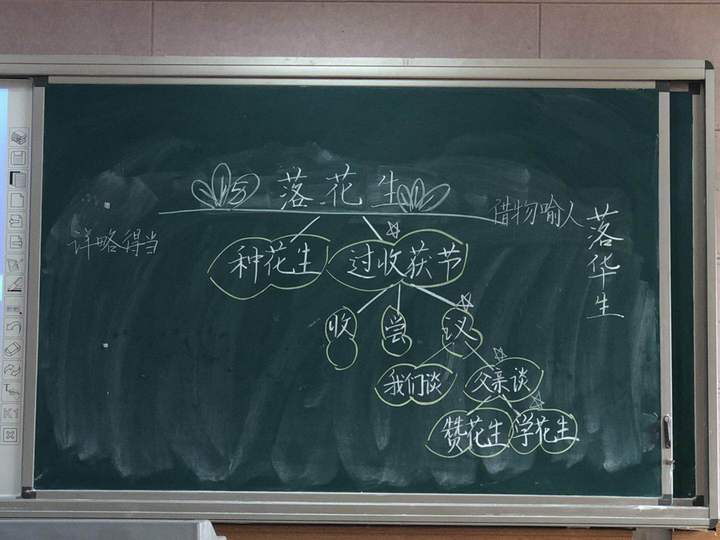 15 落花生
借物喻人
详略得当
落华生
种花生 过收获节
收 尝 议
我们谈 父亲谈
赞花生 学花生
K1